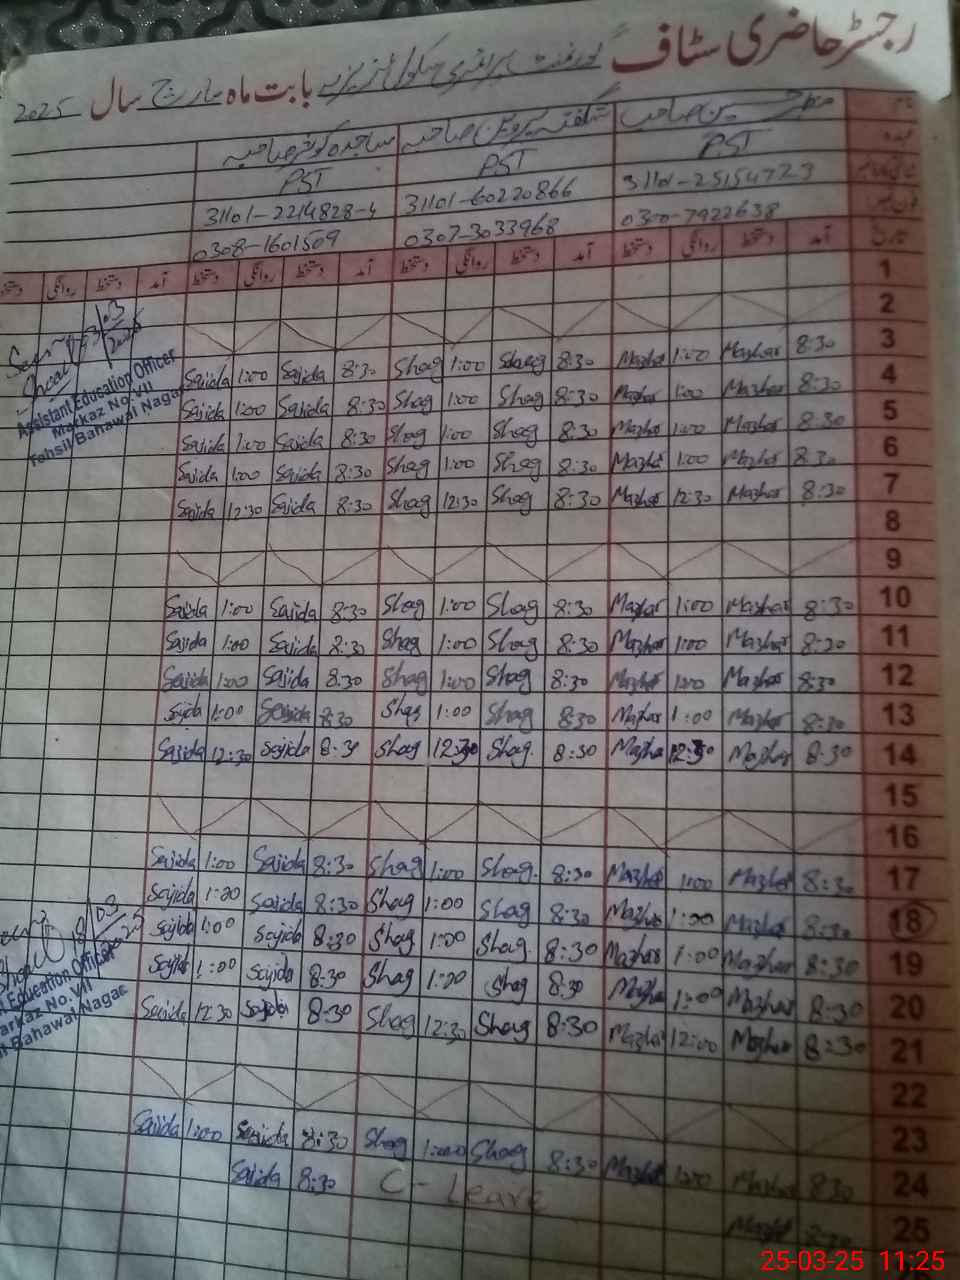 رجسٹر حاضری سٹاف گورنمنٹ پرائمری سکول بابت ماہ مارچ سال 2025
شگفتہ پروین صاحبہ ساجدہ کوثر صاحبہ
PST PST PST
31101-60220866 31101-2214828-4
0300-7922638 0307-3033968 0308-1601509
تاریخ آمد دستخط روانگی دستخط آمد دستخط روانگی دستخط آمد دستخط روانگی دستخط آمد دستخط روانگی
1
2
Sajida 1:00 Sajida 8:30 Shag 1:00 Shag 8:30 Mazhar 1:00 Mazhar 8:30 3
Sajida 1:00 Sajida 8:30 Shag 1:00 Shag 8:30 Mazhar 1:00 Mazhar 8:30 4
Sajida 1:00 Sajida 8:30 Shag 1:00 Shag 8:30 Mazhar 1:00 Mazhar 8:30 5
Sajida 1:00 Sajida 8:30 Shag 1:00 Shag 8:30 Mazhar 1:00 Mazhar 8:30 6
Sajida 12:30 Sajida 8:30 Shag 12:30 Shag 8:30 Mazhar 12:30 Mazhar 8:30 7
8
9
Sajida 1:00 Sajida 8:30 Shag 1:00 Shag 8:30 Mazhar 1:00 Mazhar 8:30 10
Sajida 1:00 Sajida 8:30 Shag 1:00 Shag 8:30 Mazhar 1:00 Mazhar 8:30 11
Sajida 1:00 Sajida 8:30 Shag 1:00 Shag 8:30 Mazhar 1:00 Mazhar 8:30 12
Sajida 1:00 Sajida 8:30 Shag 1:00 Shag 8:30 Mazhar 1:00 Mazhar 8:30 13
Sajida 12:30 Sajida 8:30 Shag 12:30 Shag. 8:30 Mazhar 12:30 Mazhar 8:30 14
15
16
Sajida 1:00 Sajida 8:30 Shag 1:00 Shag. 8:30 Mazhar 1:00 Mazhar 8:30 17
Sajida 1:00 Sajida 8:30 Shag 1:00 Shag 8:30 Mazhar 1:00 Mazhar 8:30 18
Sajida 1:00 Sajida 8:30 Shag 1:00 Shag. 8:30 Mazhar 1:00 Mazhar 8:30 19
Sajida 1:00 Sajida 8:30 Shag 1:00 Shag 8:30 Mazhar 1:00 Mazhar 8:30 20
Sajida 12:30 Sajida 8:30 Shag 12:30 Shag 8:30 Mazhar 12:00 Mazhar 8:30 21
22
23
Sajida 1:00 Sajida 8:30 Shag 1:00 Shag 8:30 Mazhar 1:00 Mazhar 8:30 24
Sajida 8:30 C - Leave Mazhar 8:30 25
03
2025
Assistant Education Officer
Markaz No. VII
Tehsil Bahawal Nagar
18/03
2025
Education Officer
Markaz No. VII
Bahawal Nagar
25-03-25 11:25